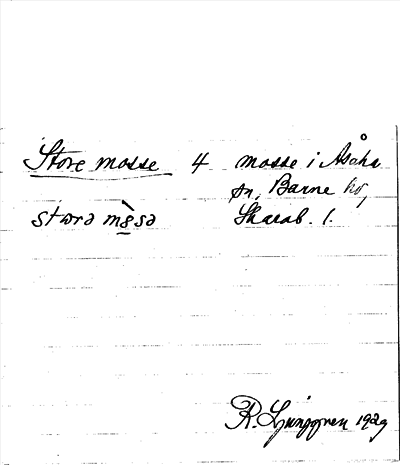 Store mosse 4 mosse i Åsaka
sn, Barne hd,
storə mòsə Skarab. l.
R. Ljunggren 1929